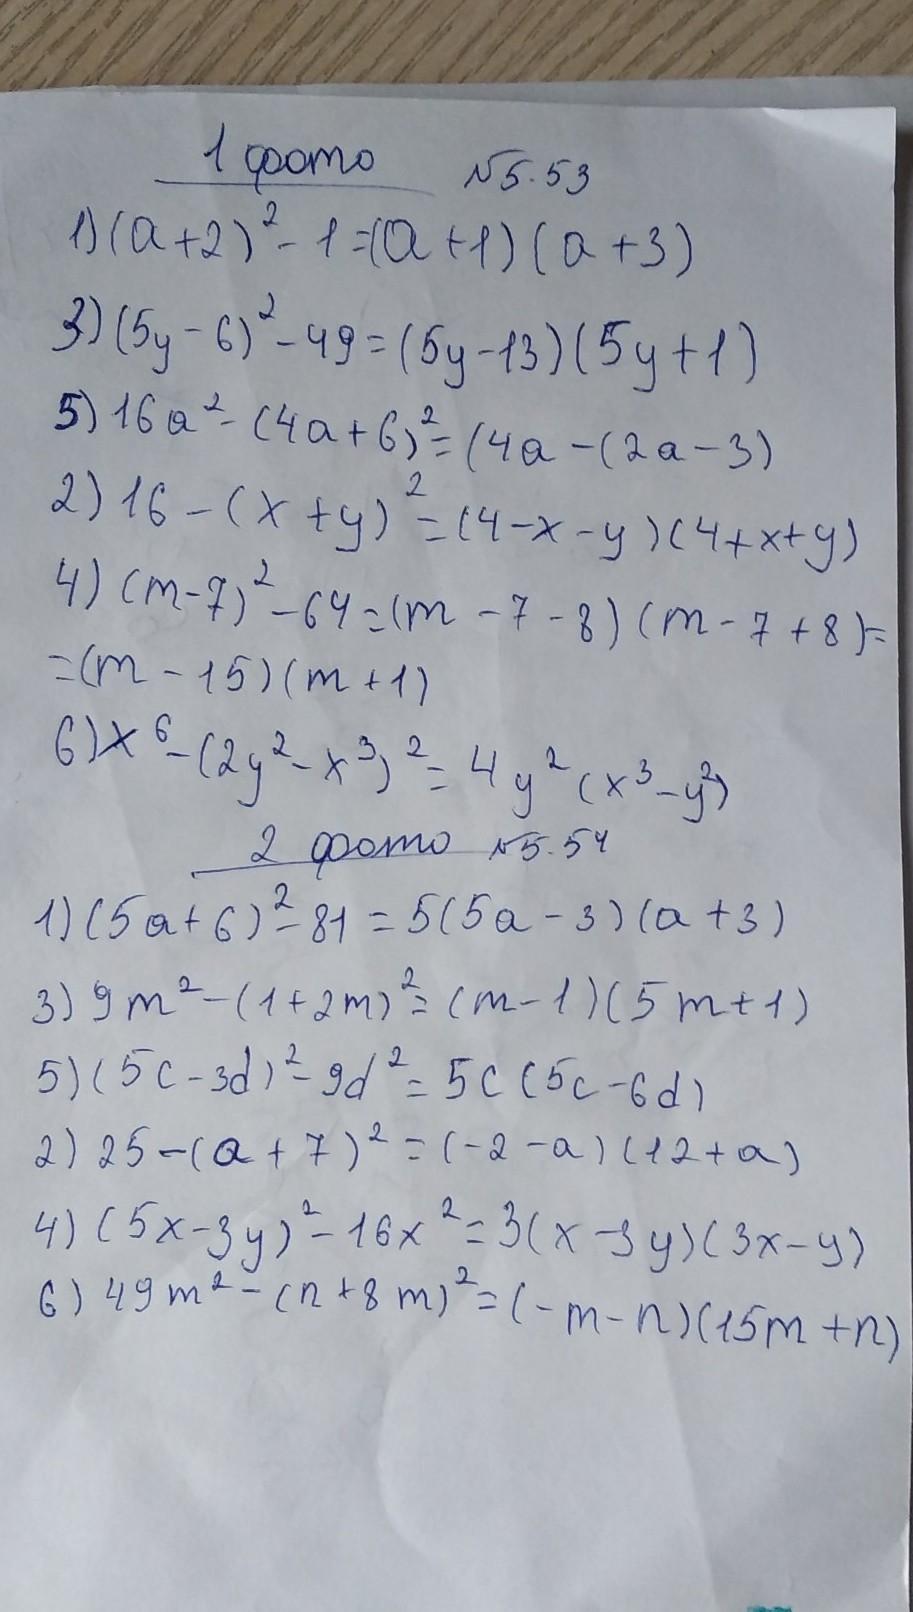 1 фото №5.53
1) (a+2)² - 1 = (a+1) (a+3)
3) (5y-6)² - 49 = (5y-13) (5y+1)
5) 16a² - (4a+6)² = (4a - (2a-3)
2) 16 - (x+y)² = (4-x-y) (4+x+y)
4) (m-7)² - 64 = (m-7-8) (m-7+8) =
= (m-15) (m+1)
6) x⁶ - (2y² - x³)² = 4y² (x³ - y²)
2 фото №5.54
1) (5a+6)² - 81 = 5(5a-3) (a+3)
3) 9m² - (1+2m)² = (m-1) (5m+1)
5) (5c-3d)² - 9d² = 5c (5c-6d)
2) 25 - (a+7)² = (-2-a) (12+a)
4) (5x-3y)² - 16x² = 3(x-3y) (3x-y)
6) 49m² - (n+8m)² = (-m-n) (15m+n)